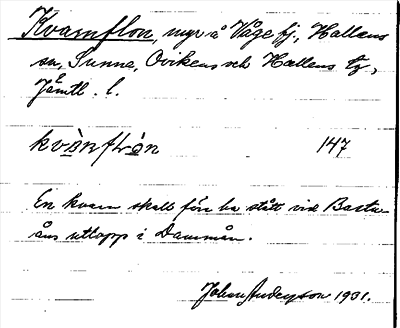 Kvarnflon, myr å Våge fj., Hallens
sn, Sunne, Oviken och Hallens tg,
Jämtl. l.
kvὰnflὰn 147
En kvarn skall förr ha stått vid Bastu-
åns utlopp i Dammån.
Johan Anderzson 1931.